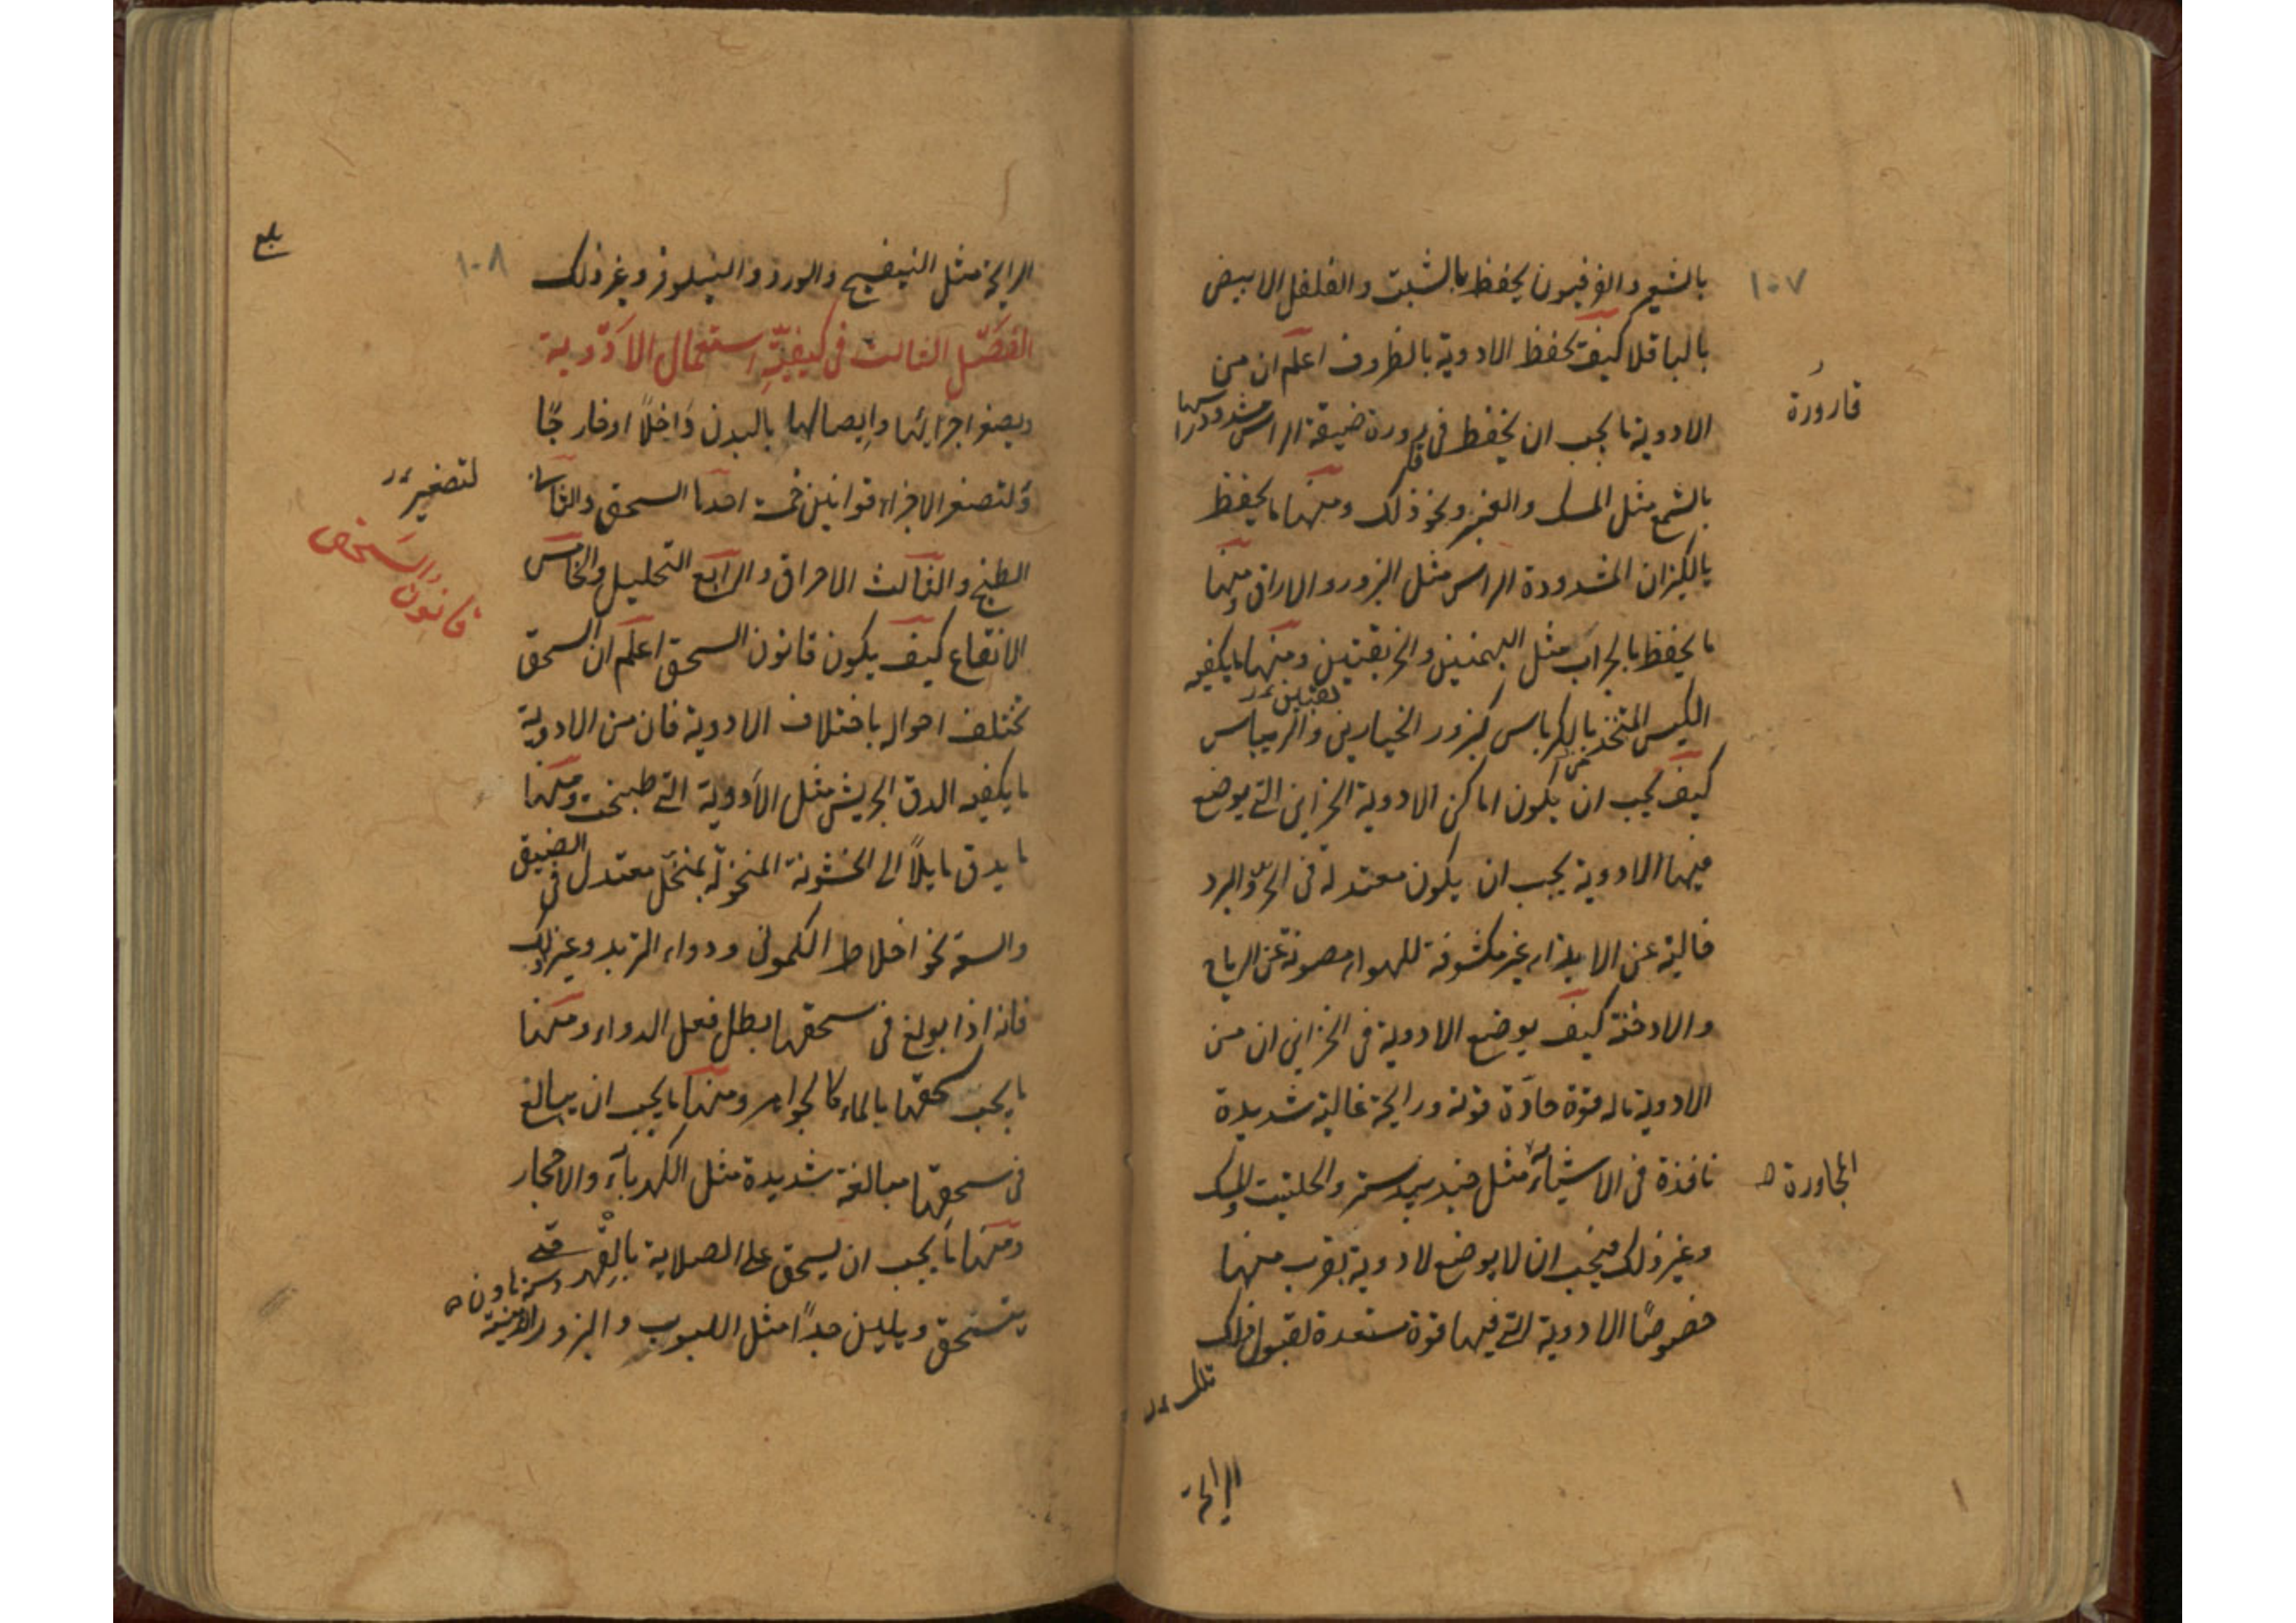 ١٠٧
بالشعير والفرفيون يحفظ بالشبت والفلفل الابيض
بالباقلا كيف تحفظ الادوية بالظروف اعلم ان من
الادوية ما يجب ان يحفظ فى قارورة ضيقة الراس مشدود راسها
قارورة
بالشمع مثل المسك والعنبر ونحو ذلك ومنها ما يحفظ
بالكيزان المشدودة الراس مثل البزور والاراق ومنها
ما يحفظ بالجراب مثل البهمنين والخربقين ومنها ما يكفيه
الكيس المتخذ بالكرباس كبزور الخيارين والريباس
كيف يجب ان يكون اماكن الادوية الخزاين التى يوضع
فيها الادوية يجب ان يكون معتدلة فى الحر والبرد
خالية عن الانداء غير مكشوفة للهواء مصونة عن الرياح
والادخنة كيف يوضع الادوية فى الخزاين ان من
الادوية ماله قوة حادة قوية ورايحة غالبة شديدة
نافذة فى الاشياء مثل جندبيدستر والحلتيت والمسك
المجاورة
وغير ذلك فيجب ان لا يوضع لادوية بقرب منها
خصوصًا الادوية التى فيها قوة مستعدة لقبول ذلك
تلك
الرايحة
١٠٨
بلغ
الرايحة مثل البنفسج والورد والنيلوفر وغير ذلك
الفصل الثالث فى كيفية استعمال الادوية
وبصغر اجزائها وايصالها بالبدن داخلًا او خارجًا
ولتصغر الاجزاء قوانين خمسة احدها السحق والثانى
لتصغير
الطبخ والثالث الاحراق والرابع التحليل والخامس
الانقاع كيف يكون قانون السحق اعلم ان السحق
قانون
تختلف احواله باختلاف الادوية فان من الادوية
ما يكفيه الدق الجريش مثل الادوية التى طبخت ومنها
ما يدق مايلًا الى الخشونة المنخولة بمنخل معتدل فى الضيق
والسعة نحو اخلاط الكمونى ودواء التربد وغير ذلك
فانه اذا بولغ فى سحقها ابطل فعل الدواء ومنها
ما يجب سحقها بالماء كالجواهر ومنها ما يجب ان يبالغ
فى سحقها مبالغة شديدة مثل الكهرباء والاحجار
ومنها ما يجب ان يسحق على الصلاية بالفهر حتى
ينسحق ويلين جدًا مثل الحبوب والبزور الدهنية